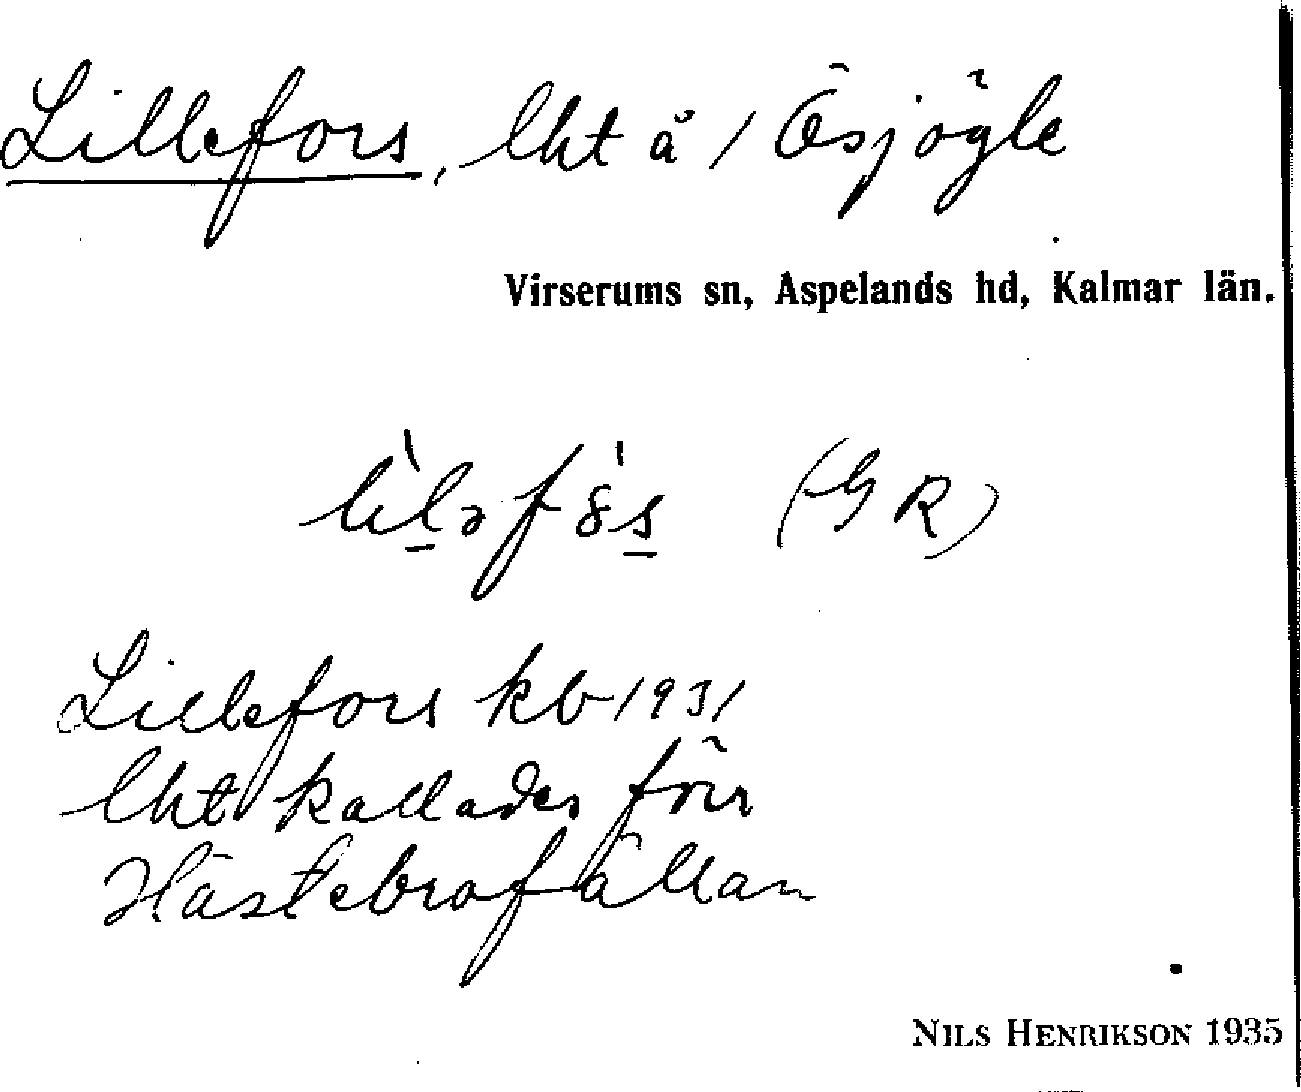 Lillefors, lht å 1 Ösjögle
Virserums sn, Aspelands hd, Kalmar län.
(GR)
Lillefors kb 1931
lht kallades förr
Hästebrofällan
NILS HENRIKSON 1935